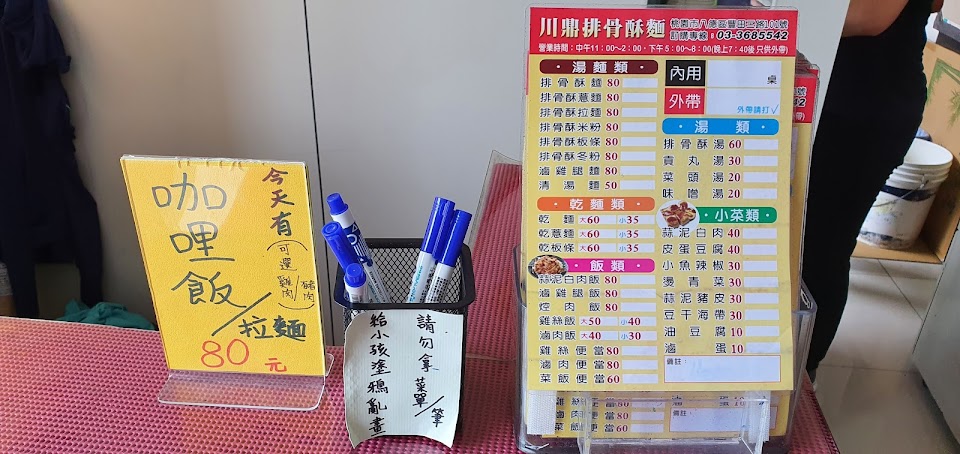 今天有
(可選雞肉/豬肉)
咖哩飯/拉麵
80元
請勿拿菜單/筆
給小孩塗鴉亂畫
川鼎排骨酥麵
桃園市八德區豐田二路101號
訂購專線:03-3685542
營業時間:中午11:00~2:00,下午5:00~8:00(晚上7:40後 只供外帶)
·湯麵類·
排骨酥麵 80
排骨酥薏麵 80
排骨酥拉麵 80
排骨酥米粉 80
排骨酥板條 80
排骨酥冬粉 80
滷雞腿麵 80
清湯麵 50
·乾麵類·
乾麵 大60 小35
乾薏麵 大60 小35
乾板條 大60 小35
·飯類·
蒜泥白肉飯 80
滷雞腿飯 80
焢肉飯 80
雞絲飯 大50 小40
滷肉飯 大40 小30
雞絲便當 80
滷肉便當 80
菜飯便當 60
內用
桌
外帶
外帶請打✓
·湯類·
排骨酥湯 60
貢丸湯 30
菜頭湯 20
味噌湯 20
·小菜類·
蒜泥白肉 40
皮蛋豆腐 40
小魚辣椒 30
燙青菜 30
蒜泥豬皮 30
豆干海帶 30
油豆腐 10
滷蛋 10
備註:
雞絲便當 80
滷肉便當 80
菜飯便當 60
滷蛋 10
備註: